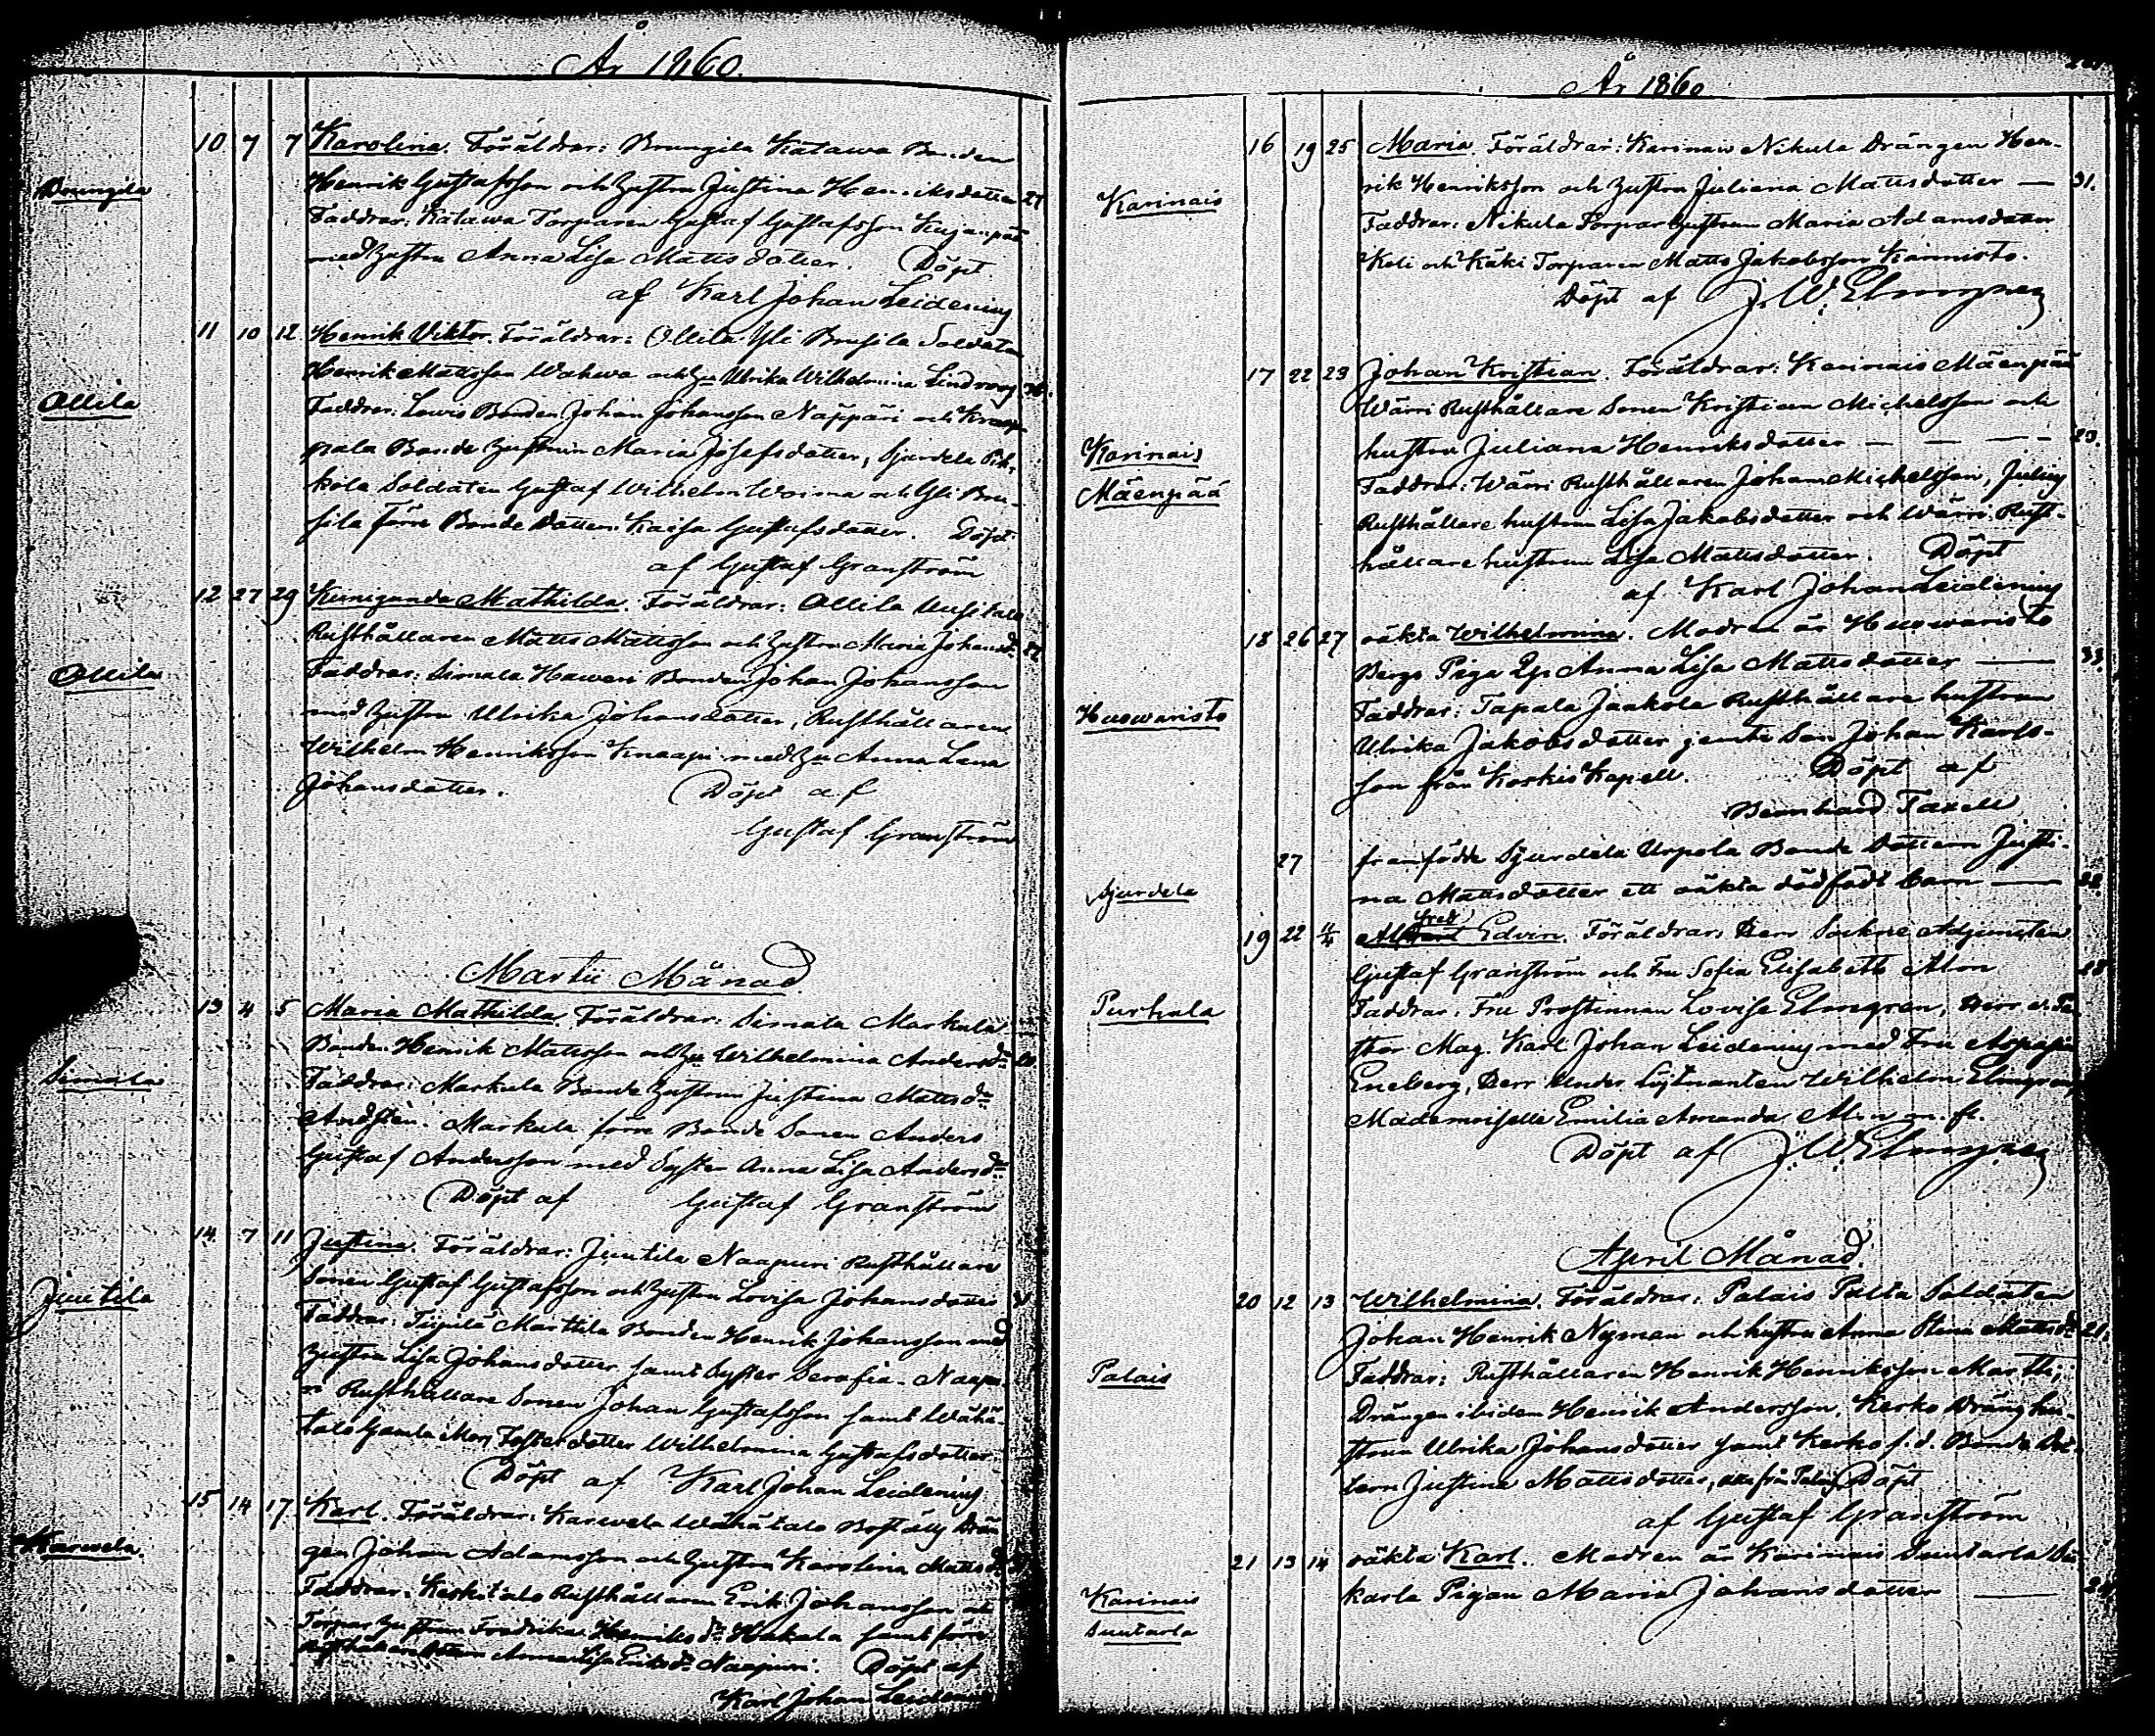 År 1860.
10 7 7 Karolina. Föräldrar: Brungila Katawa Bonden
Brungila
Henrik Gustafsson och hustru Justina Henriksdotter 27
Faddrar: Katawa Torparen Gustaf Gustafsson Kujanpää
med hustru Anna Lisa Mattsdotter. Döpt
af Karl Johan Leidenius
11 10 12 Henrik Viktor. Föräldrar: Ollila Yli Brusila Soldaten
Henrik Mattsson Wahwa och hu Ulrika Wilhelmina Lindroos
Ollila
Faddrar: Lewis Bonden Johan Johansson Näppäri och
pala Bonde hustrun Maria Josefsdotter, Sjurdela Pih-
kola Soldaten Gustaf Wilhelm Woima och Yli Bru-
sila förre Bonde Dottern Kaisa Gustafsdotter. Döpt
af Gustaf Granström
12 27 29 Kunigunda Mathilda. Föräldrar: Ollila Uusitalo
Rusthållaren Matts Mattsson och hustru Maria Johansdr
Ollila
Faddrar: Simala Haweri Bonden Johan Johansson
med hustru Ulrika Johansdotter, Rusthållaren
Wilhelm Henriksson Knaapi med hu Anna Lena
Johansdotter. Döpt af
Gustaf Granström
Martii Månad
13 4 5 Maria Mathilda. Föräldrar: Simala Markula
Bonden Henrik Mattsson och hu Wilhelmina Andersdr
Simala
Faddrar: Markula Bonde hustrun Justina Mattsdr
Markula förre Bonde Sonen Anders
Gustaf Andersson med Syster Anna Lisa Andersdr
Döpt af Gustaf Granström
14 7 11 Justina. Föräldrar: Juutila Naapuri Rusthållare
Juutila
Sonen Gustaf Gustafsson och hustru Lovisa Johansdotter 31
Faddrar: Tiipilä Marttila Bonden Henrik Johansson med
hustru Lisa Johansdotter samt Syster Serafia. Naapu-
ri Rusthållare Sonen Johan Gustafsson samt Wähä-
talo Gamla Mors Fosterdotter Wilhelmina Gustafsdotter.
Döpt af Karl Johan Leidenius
15 14 17 Karl. Föräldrar: Karwela Wähätalo Boställs Drän
Karwela.
gen Johan Adamsson och hustru Karolina Mattsdr
Faddrar: Keskitalo Rusthållaren Erik Johansson och
Torpar hustrun Fredrika Henriksdr Hakala samt förre
Anna Lisa Eriksdr Naapuri. Döpt af
Karl Johan Leidenius
År 1860
16 19 25 Maria. Föräldrar: Karinais Nikula Drängen Hen-
Karinais
rik Henriksson och hustru Juliana Mattsdotter — 31.
Faddrar: Nikula Torpar hustrun Maria Adamsdotter
Koli och Käki Torparen Matts Jakobsson Kännisto.
Döpt af J. W. Elmgren
17 22 23 Johan Kristian. Föräldrar: Karinais Mäenpää
Wärri Rusthållare Sonen Kristian Michelsson och
Karinais
Mäenpää
hustru Juliana Henriksdotter — — — 23.
Faddrar: Wärri Rusthållaren Johan Michelsson, Julius
Rusthållare hustrun Lisa Jakobsdotter och Wärri Rust-
hållare hustrun Lisa Mattsdotter. Döpt
af Karl Johan Leidenius
18 26 27 oäkta Wilhelmina. Modren är Huowaristo
Bergs Piga Anna Lisa Mattsdotter — 33.
Huowaristo
Faddrar: Tapala Jaakola Rusthållare hustrun
Ulrika Jakobsdotter jemte Son Johan Karls-
son från Koskis Kapell. Döpt af
Bernhard Taxell
27 framfödde Sjurdela Uspola Bonde Dottern Justi-
Sjurdela
na Mattsdotter ett oäkta dödfödt barn —
19 22 11/4 Alfred Edvin. Föräldrar: Herr Sockne Adjunkten
Gustaf Granström och Fru Sofia Elisabeth Alon 28
Purhala
Faddrar: Fru Prostinnan Lovisa Elmgren, Herr v. Pa-
stor Mag. Karl Johan Leidenius med Fru Aspasia
Eneberg, Herr Under Löjtnanten Wilhelm Elmgren,
Mademoiselle Emilia Amanda Alon m. fl.
Döpt af J. W. Elmgren
April Månad.
20 12 13 Wilhelmina. Föräldrar: Palais Pelta Soldaten
Johan Henrik Nyman och hustru Anna Stina Mattsdr 21.
Palais
Faddrar: Rusthållaren Henrik Henriksson Martti;
Drängen ibidem Henrik Andersson, Kerko Dräng hu-
strun Ulrika Johansdotter samt Kerko f. d. Bonde Dot-
tern Justina Mattsdotter, alla från Palais Döpt
af Gustaf Granström
21 13 14 oäkta Karl. Modren är Karinais Suutarla
Karinais
Suutarla
karla Pigan Maria Johansdotter —